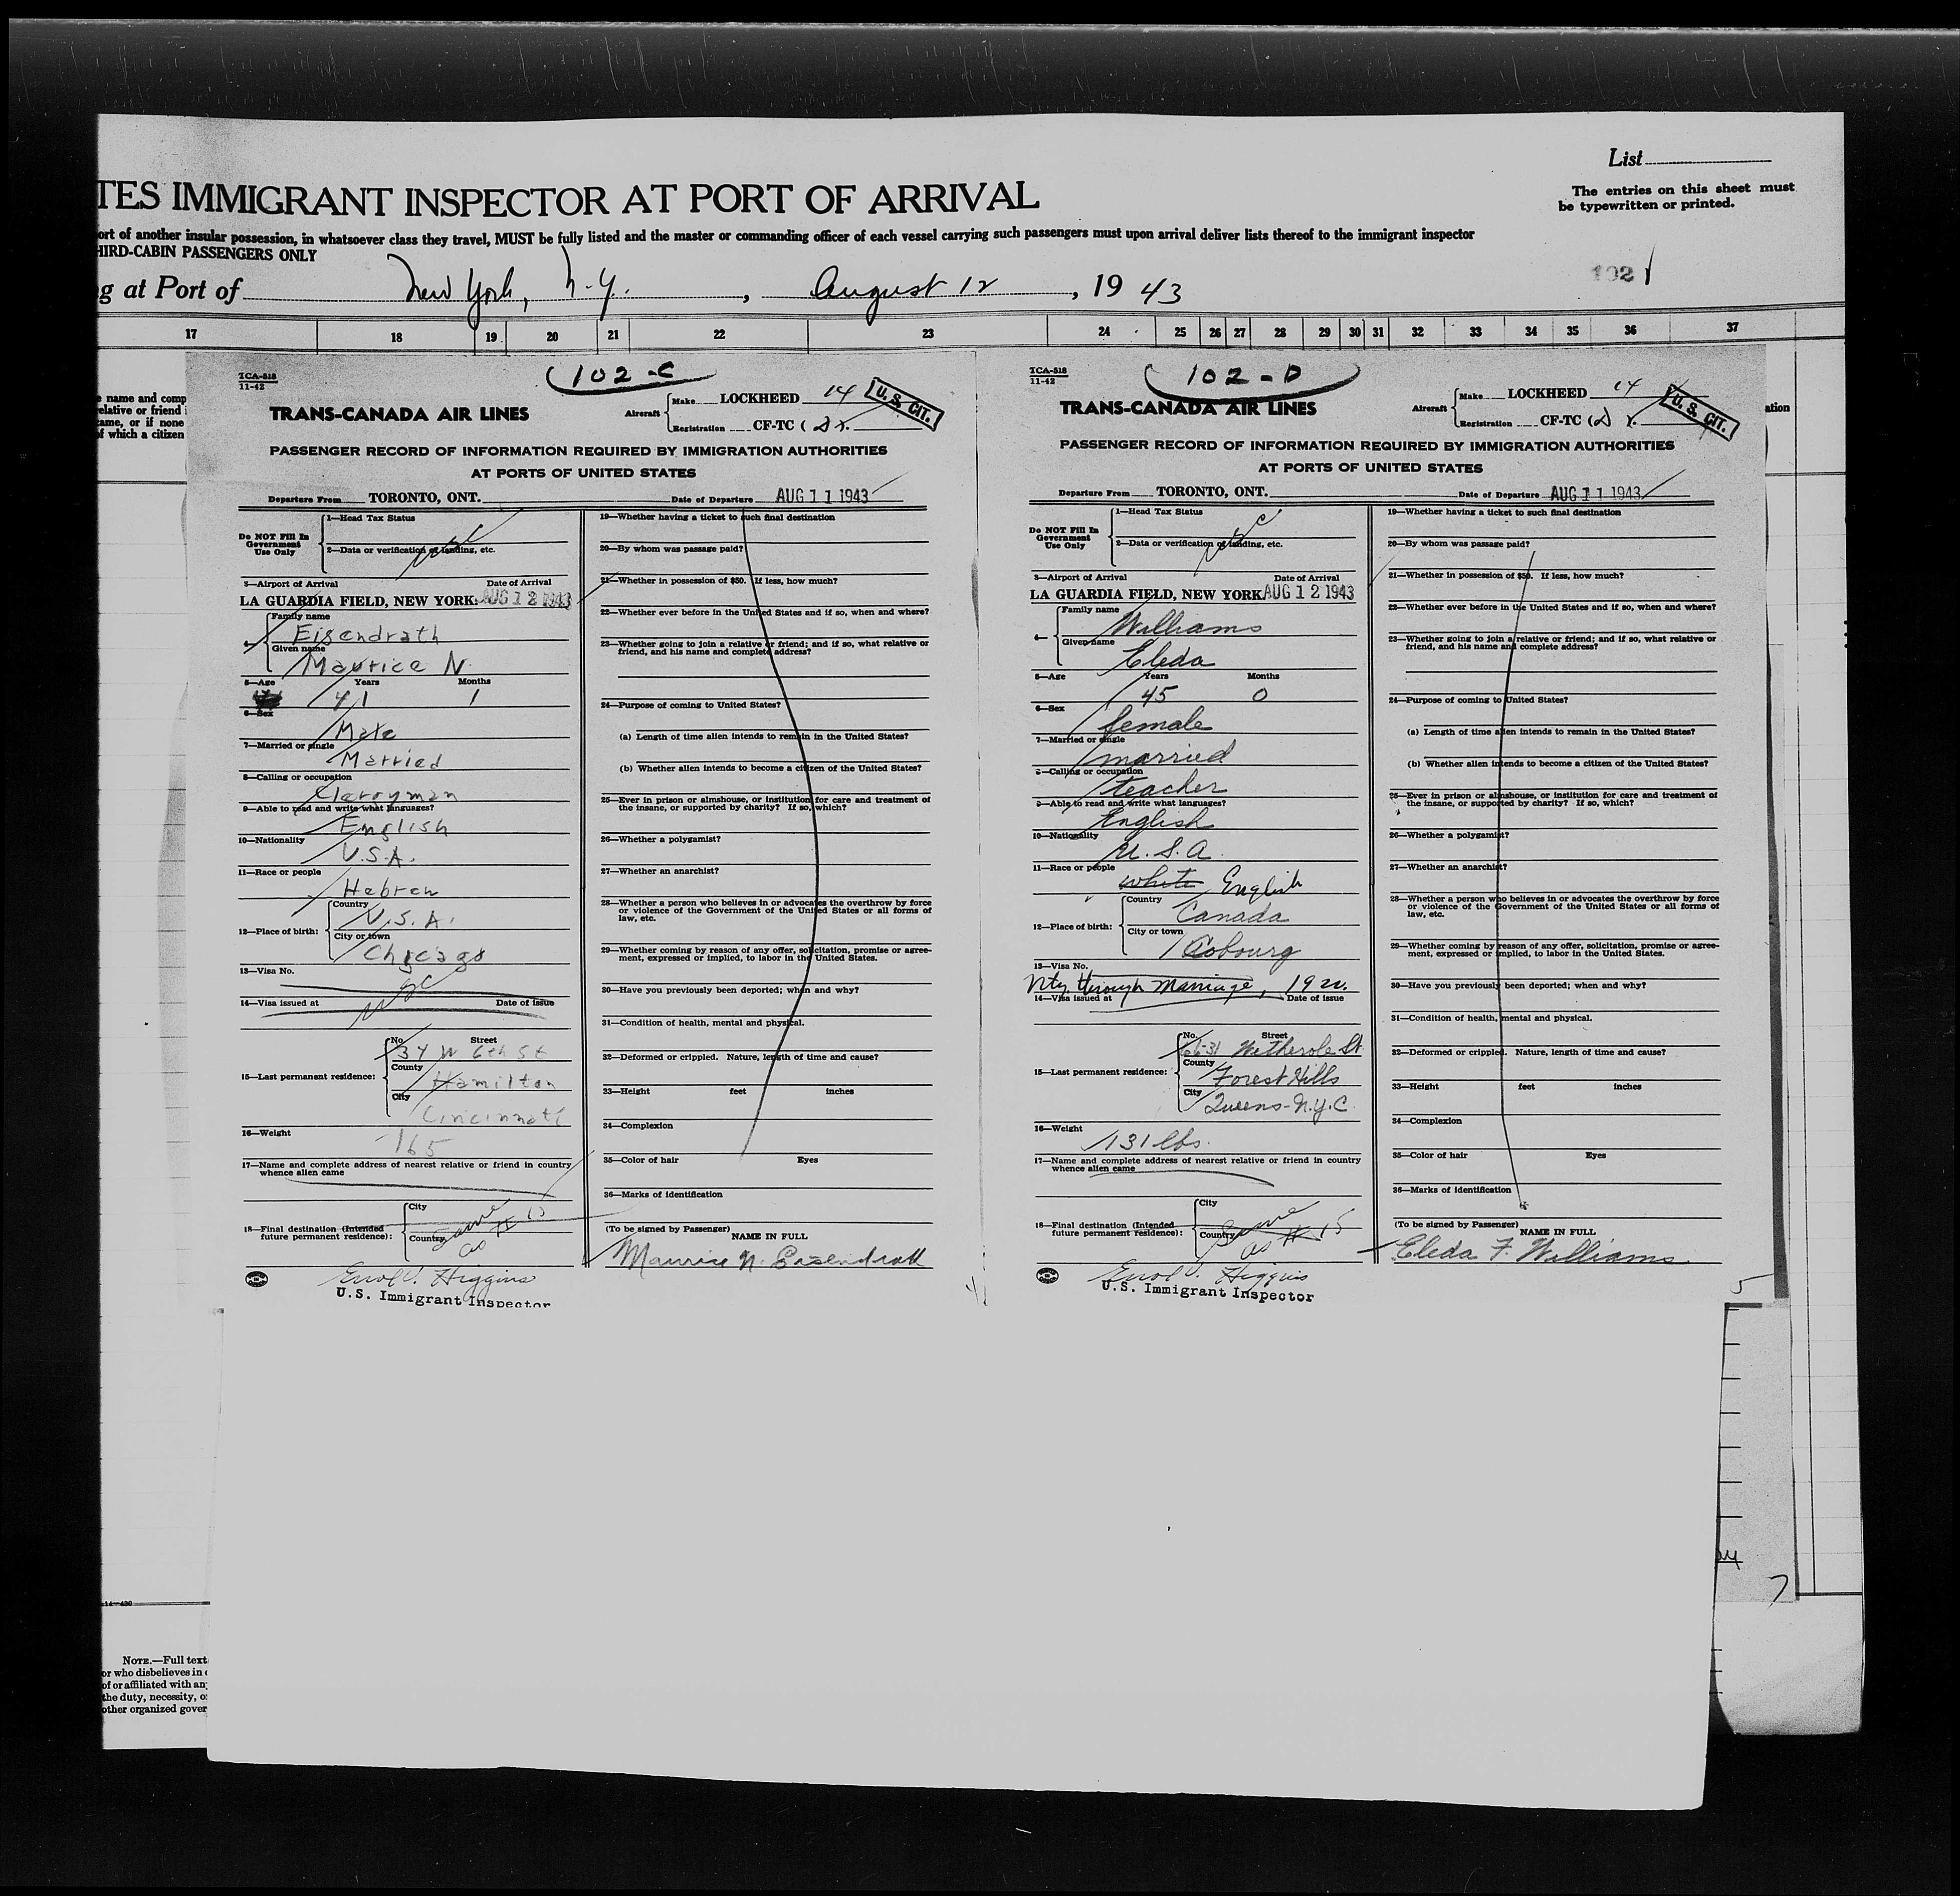 List
The entries on this sheet must
be typewritten or printed.
TES IMMIGRANT INSPECTOR AT PORT OF ARRIVAL
ort of another insular possession, in whatsoever class they travel, MUST be fully listed and the master or commanding officer of each vessel carrying such passengers must upon arrival deliver lists thereof to the immigrant inspector
HIRD-CABIN PASSENGERS ONLY
102
g at Port of New York, N.Y., August 12, 1943
17 18 19 20 21 22 23 24 25 26 27 28 29 30 31 32 33 34 35 36 37
e name and comp
relative or friend i
came, or if none
of which a citizen
ation
TCA-518
11-42
102-C
TRANS-CANADA AIR LINES
Aircraft
Make LOCKHEED 14
Registration CF-TC (
U. S. CIT.
PASSENGER RECORD OF INFORMATION REQUIRED BY IMMIGRATION AUTHORITIES
AT PORTS OF UNITED STATES
Departure From TORONTO, ONT. Date of Departure AUG 11 1943
Do NOT Fill In
Government
Use Only
1—Head Tax Status
2—Data or verification of landing, etc.
USC
3—Airport of Arrival Date of Arrival
LA GUARDIA FIELD, NEW YORK. AUG 12 1943
4— Family name
Eisendrath
Given name
Maurice N.
5—Age Years Months
41 1
6—Sex
Male
7—Married or single
Married
8—Calling or occupation
Clergyman
9—Able to read and write what languages?
English
10—Nationality
U.S.A.
11—Race or people
Hebrew
12—Place of birth:
Country
U.S.A.
City or town
Chicago
13—Visa No.
USC
14—Visa issued at Date of issue
15—Last permanent residence:
No. Street
34 W 6th St
County
Hamilton
City
Cincinnati
16—Weight
165
17—Name and complete address of nearest relative or friend in country
whence alien came
18—Final destination (Intended
future permanent residence):
City
Country
Same
as # 15
Errol V. Higgins
U.S. Immigrant Inspector
19—Whether having a ticket to such final destination
20—By whom was passage paid?
21—Whether in possession of $50. If less, how much?
22—Whether ever before in the United States and if so, when and where?
23—Whether going to join a relative or friend; and if so, what relative or
friend, and his name and complete address?
24—Purpose of coming to United States?
(a) Length of time alien intends to remain in the United States?
(b) Whether alien intends to become a citizen of the United States?
25—Ever in prison or almshouse, or institution for care and treatment of
the insane, or supported by charity? If so, which?
26—Whether a polygamist?
27—Whether an anarchist?
28—Whether a person who believes in or advocates the overthrow by force
or violence of the Government of the United States or all forms of
law, etc.
29—Whether coming by reason of any offer, solicitation, promise or agree-
ment, expressed or implied, to labor in the United States.
30—Have you previously been deported; when and why?
31—Condition of health, mental and physical.
32—Deformed or crippled. Nature, length of time and cause?
33—Height feet inches
34—Complexion
35—Color of hair Eyes
36—Marks of identification
(To be signed by Passenger)
NAME IN FULL
Maurice N. Eisendrath
TCA-518
11-42
102-D
TRANS-CANADA AIR LINES
Aircraft
Make LOCKHEED 14
Registration CF-TC (
U. S. CIT.
PASSENGER RECORD OF INFORMATION REQUIRED BY IMMIGRATION AUTHORITIES
AT PORTS OF UNITED STATES
Departure From TORONTO, ONT. Date of Departure AUG 11 1943
Do NOT Fill In
Government
Use Only
1—Head Tax Status
2—Data or verification of landing, etc.
USC
3—Airport of Arrival Date of Arrival
LA GUARDIA FIELD, NEW YORK AUG 12 1943
4— Family name
Williams
Given name
Eleda
5—Age Years Months
45 0
6—Sex
female
7—Married or single
married
8—Calling or occupation
teacher
9—Able to read and write what languages?
English
10—Nationality
U.S.A.
11—Race or people
white English
12—Place of birth:
Country
Canada
City or town
Cobourg
13—Visa No.
Ntz through Marriage, 1920.
14—Visa issued at Date of issue
15—Last permanent residence:
No. Street
66-31 Wetherole St.
County
Forest Hills
City
Queens-N.Y.C.
16—Weight
131 lbs.
17—Name and complete address of nearest relative or friend in country
whence alien came
18—Final destination (Intended
future permanent residence):
City
Country
Same
as # 15
Errol V. Higgins
U.S. Immigrant Inspector
19—Whether having a ticket to such final destination
20—By whom was passage paid?
21—Whether in possession of $50. If less, how much?
22—Whether ever before in the United States and if so, when and where?
23—Whether going to join a relative or friend; and if so, what relative or
friend, and his name and complete address?
24—Purpose of coming to United States?
(a) Length of time alien intends to remain in the United States?
(b) Whether alien intends to become a citizen of the United States?
25—Ever in prison or almshouse, or institution for care and treatment of
the insane, or supported by charity? If so, which?
26—Whether a polygamist?
27—Whether an anarchist?
28—Whether a person who believes in or advocates the overthrow by force
or violence of the Government of the United States or all forms of
law, etc.
29—Whether coming by reason of any offer, solicitation, promise or agree-
ment, expressed or implied, to labor in the United States.
30—Have you previously been deported; when and why?
31—Condition of health, mental and physical.
32—Deformed or crippled. Nature, length of time and cause?
33—Height feet inches
34—Complexion
35—Color of hair Eyes
36—Marks of identification
(To be signed by Passenger)
NAME IN FULL
Eleda F. Williams
5
7
14—430
NOTE.—Full text
or who disbelieves in o
of or affiliated with any
the duty, necessity, o
other organized gover